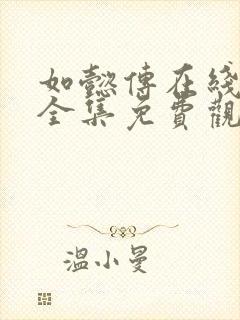 如懿傳在綫
全集免費觀
溫小曼